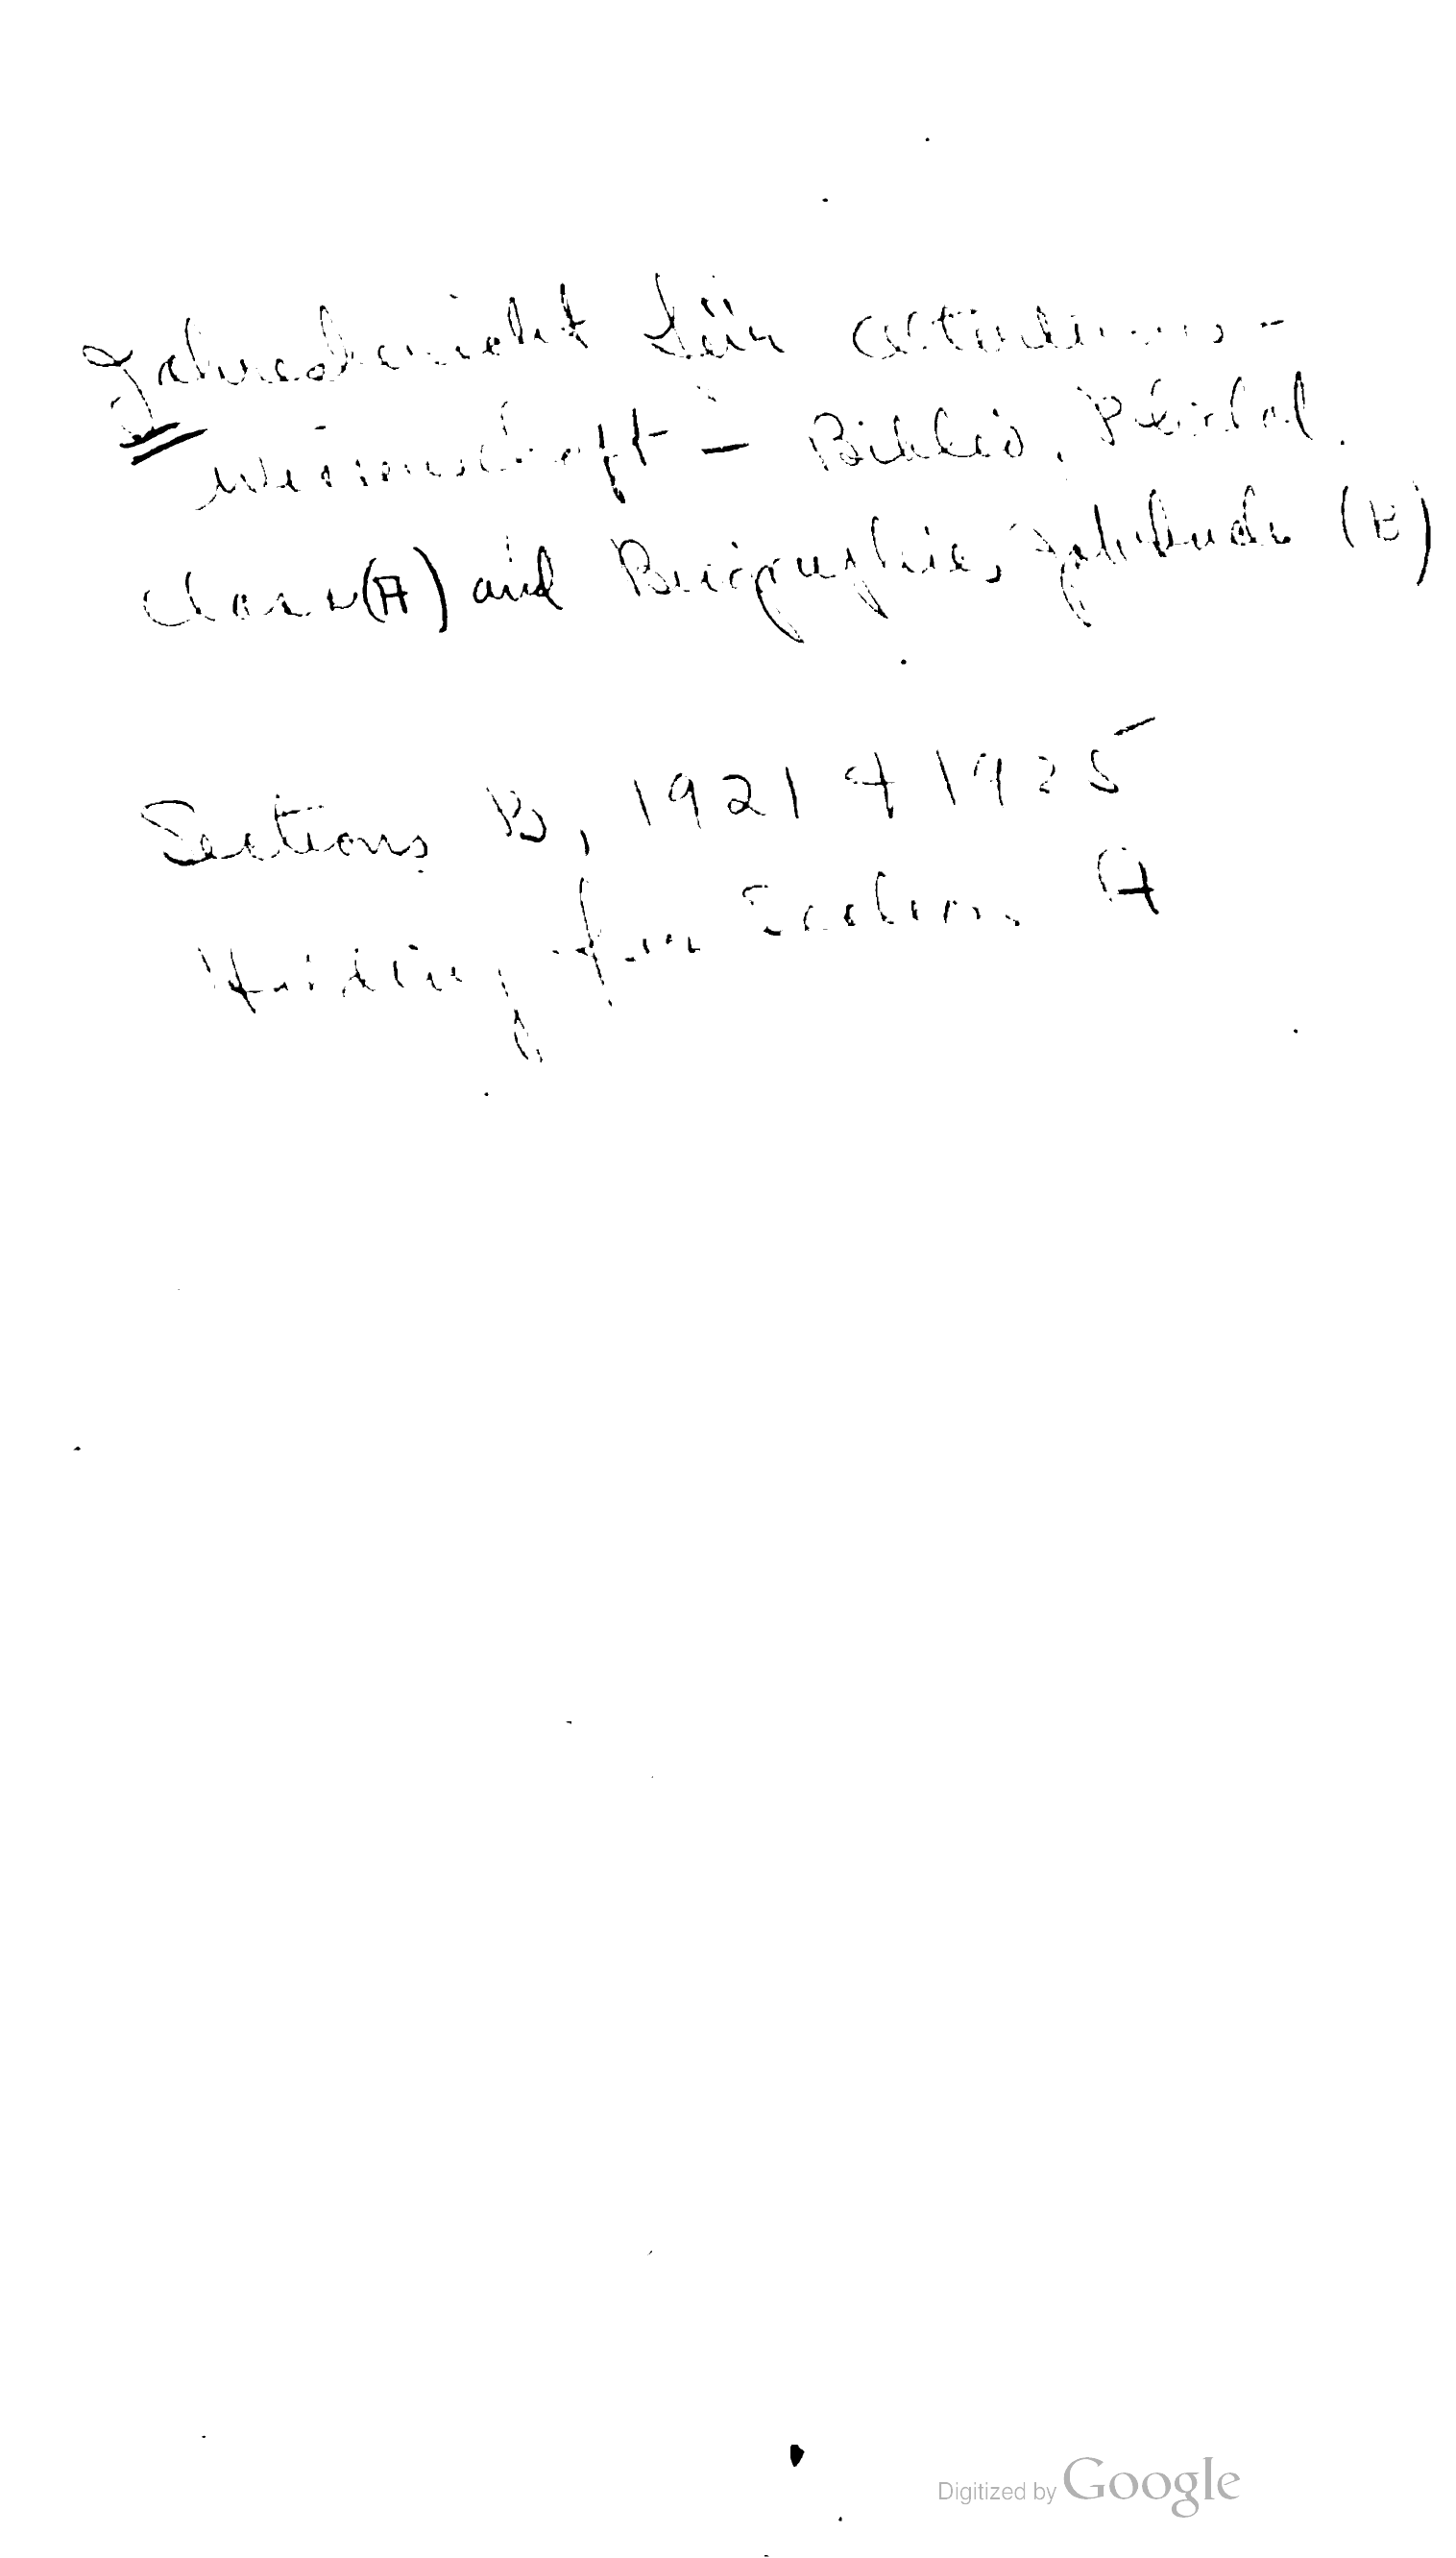 Jahresbericht für Altertums-
wissenschaft - Biblio. Philol.
class (A) and Biographies Jahrbuch (B)
Sections B, 1921 & 1925
Holding for Section A
Digitized by Google